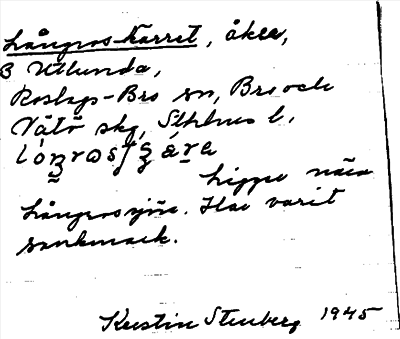 Långroskärret, åker,
B Utlunda,
Roslags-Bro sn, Bro och
Vätö skg, Sthlms l.
Ligger nära
Långrossjön. Har varit
sankmark.
Kerstin Stenberg 1945